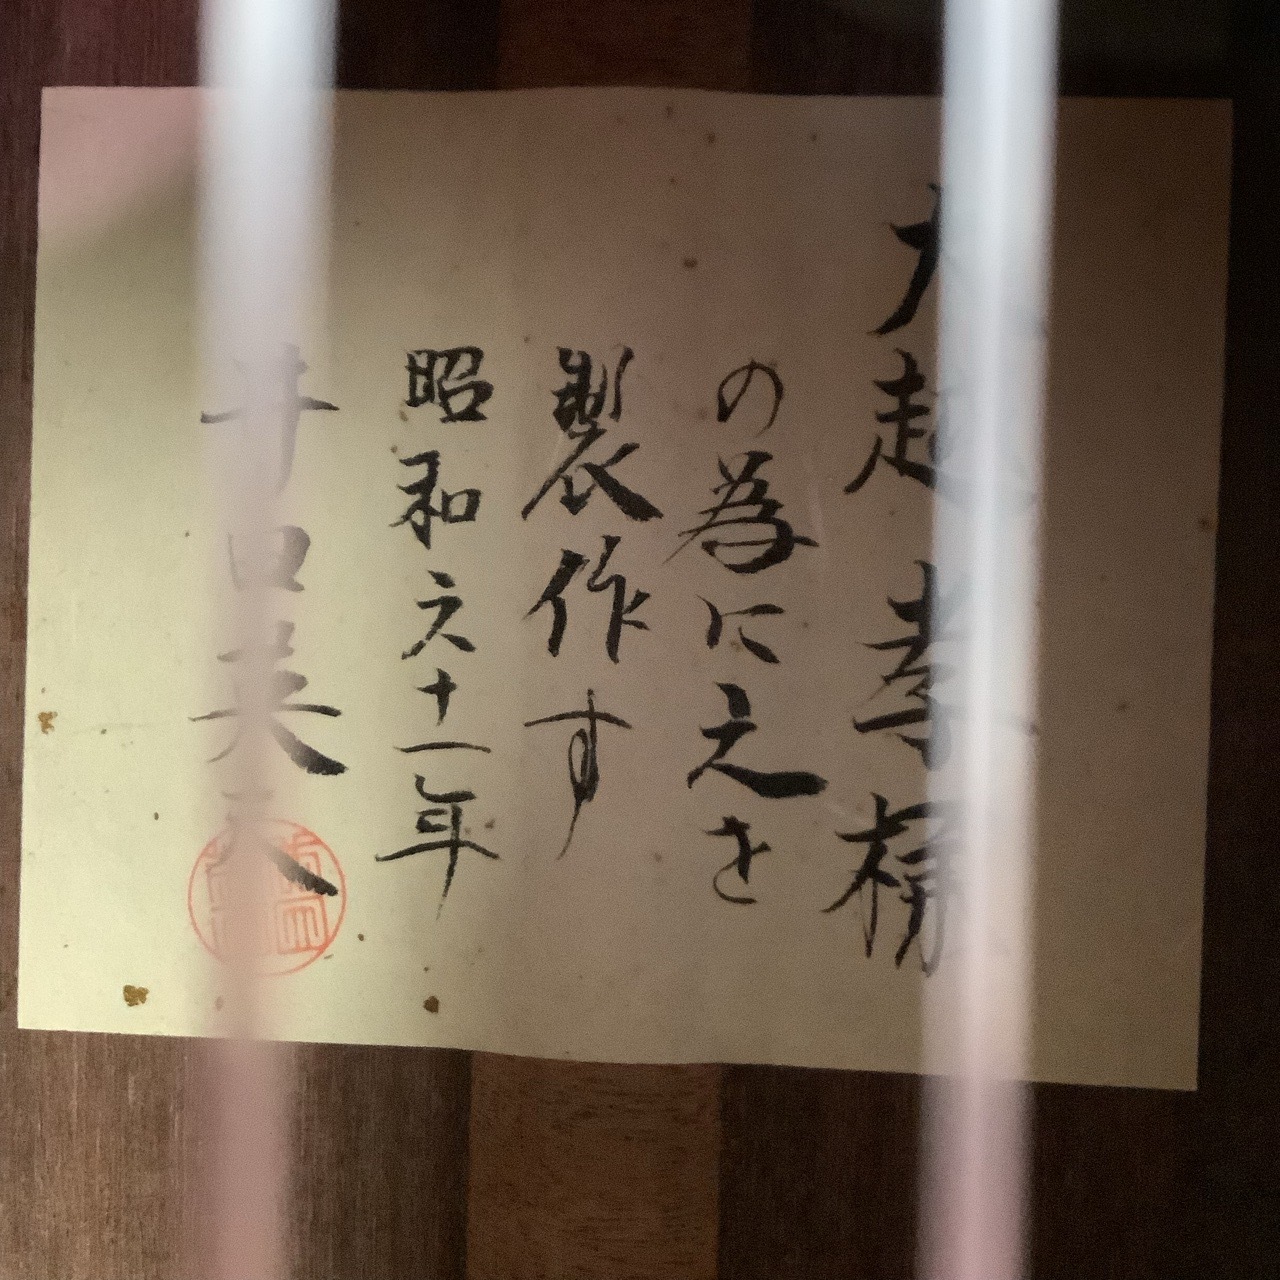 孝様
の為に之を
製作す
昭和六十一年
井田英夫